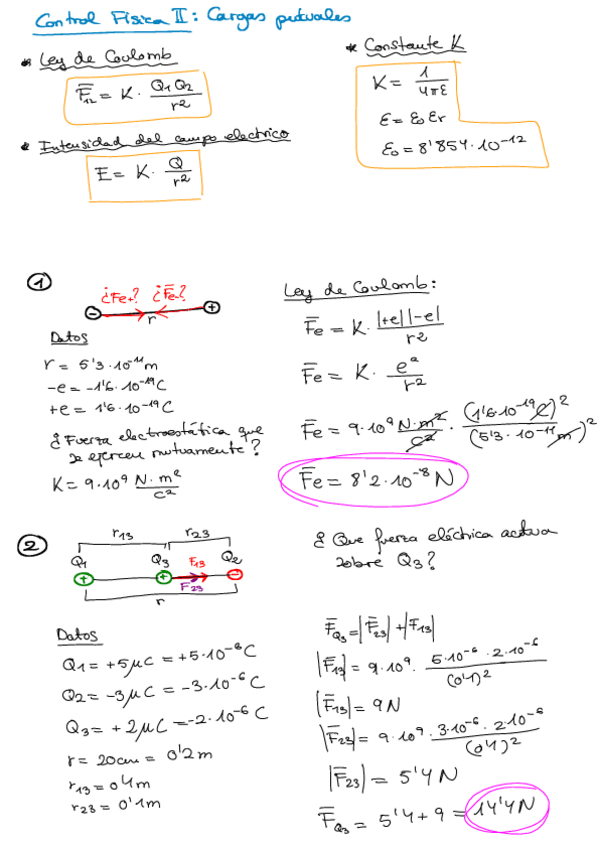 Control Física II: Cargas puntuales
* Ley de Coulomb
F̅₁₂ = K · Q₁Q₂ / r²
* Intensidad del campo eléctrico
E = K · Q / r²
* Constante K
K = 1 / 4πε
ε = ε₀ εr
ε₀ = 8'854·10⁻¹²
1
¿Fe+? ¿F̅e-?
- r +
Datos
r = 5'3·10⁻¹¹ m
-e = -1'6·10⁻¹⁹ C
+e = 1'6·10⁻¹⁹ C
¿Fuerza electroestática que
se ejercen mutuamente?
K = 9·10⁹ N·m² / c²
Ley de Coulomb:
F̅e = K · |+e||-e| / r²
F̅e = K · e² / r²
F̅e = 9·10⁹ N·m² / c² · (1'6·10⁻¹⁹ C)² / (5'3·10⁻¹¹ m)²
F̅e = 8'2·10⁻⁸ N
2
r13 r23
Q1 Q3 F13 Q2
+ + F23 -
r
¿Que fuerza eléctrica actua
sobre Q3?
Datos
Q1 = +5μC = +5·10⁻⁶ C
Q2 = -3μC = -3·10⁻⁶ C
Q3 = +2μC = -2·10⁻⁶ C
r = 20cm = 0'2 m
r13 = 0'1 m
r23 = 0'1 m
F̅Q3 = |F̅23| + |F̅13|
|F̅13| = 9·10⁹ · 5·10⁻⁶ · 2·10⁻⁶ / (0'1)²
|F̅13| = 9 N
|F̅23| = 9·10⁹ · 3·10⁻⁶ · 2·10⁻⁶ / (0'1)²
|F̅23| = 5'4 N
F̅Q3 = 5'4 + 9 = 14'4 N